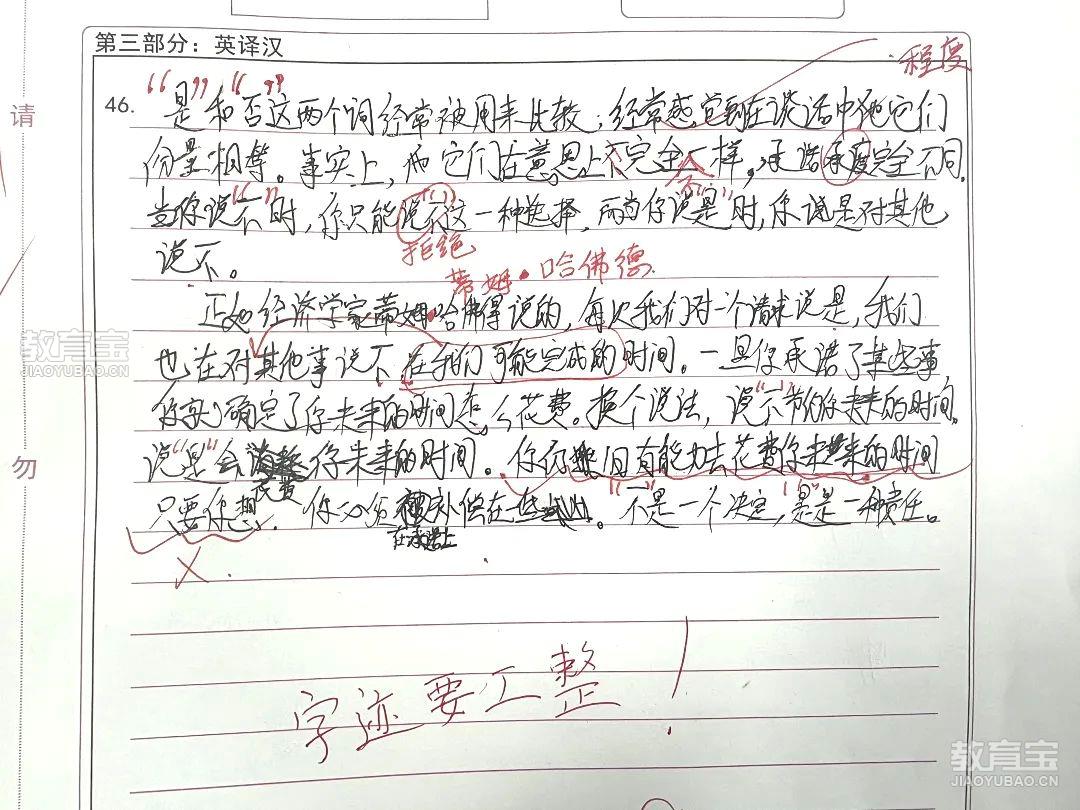 第三部分：英译汉
程度
46.
“是”和“否”这两个词经常被用来比较；经常感觉到在谈话中他它们
份量相等。事实上，而它们在意思上不完全一样，承诺承度完全不同.
当你说“不”时，你只能说“不”这一种选择，而当你说“是”时，你说是对其他
拒绝
说不。
蒂姆·哈佛德
正如经济学家蒂姆·哈佛得说的，每次我们对一个请求说是，我们
也在对其他事说不在我们可能完成的时间。一旦你承诺了某些事
你实确定了你未来的时间怎么花费。换个说法，说“不”节约你未来的时间,
说“是”会 你未来的时间。你 有能力去花费你未来的时间
花费
只要你想. 你必须 补偿在 。“不”是一个决定，“是”是一种责任。
在承诺上
字迹要工整！
请
勿
教育宝
JIAOYUBAO.CN
教育宝
JIAOYUBAO.CN